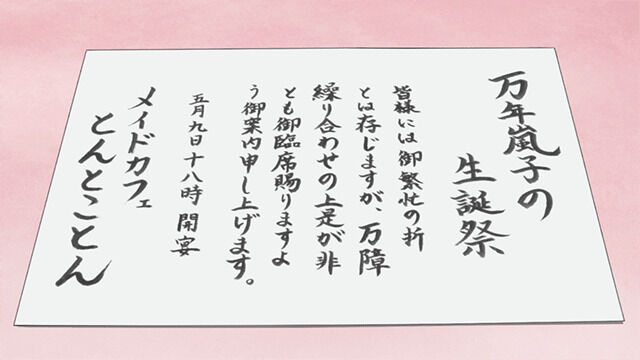 万年嵐子の
生誕祭
皆様には御繁忙の折
とは存じますが、万障
繰り合わせの上是が非
とも御臨席賜りますよ
う御案内申し上げます。
五月九日十八時 開宴
メイドカフェ
とんとことん